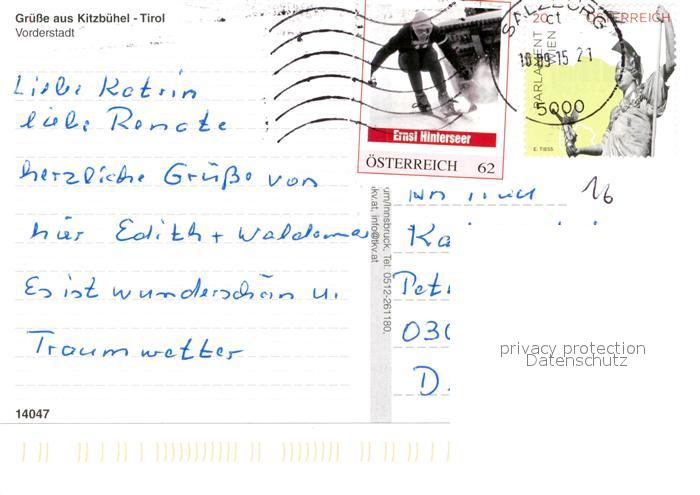 Grüße aus Kitzbühel - Tirol
Vorderstadt
Liebe Katrin
liebe Renate
herzliche Grüße von
hier Edith + Waldemar
Es ist wunderschön u.
Traumwetter
14047
Ernst Hinterseer
ÖSTERREICH 62
20 ct ÖSTERREICH
PARLAMENT
WIEN
E. TIESS
SALZBURG
10.09.15 21
5000
um/Innsbruck, Tel. 0512-261180,
kv.at, info@tkv.at
16
Ka
Pet
030
D.
privacy protection
Datenschutz